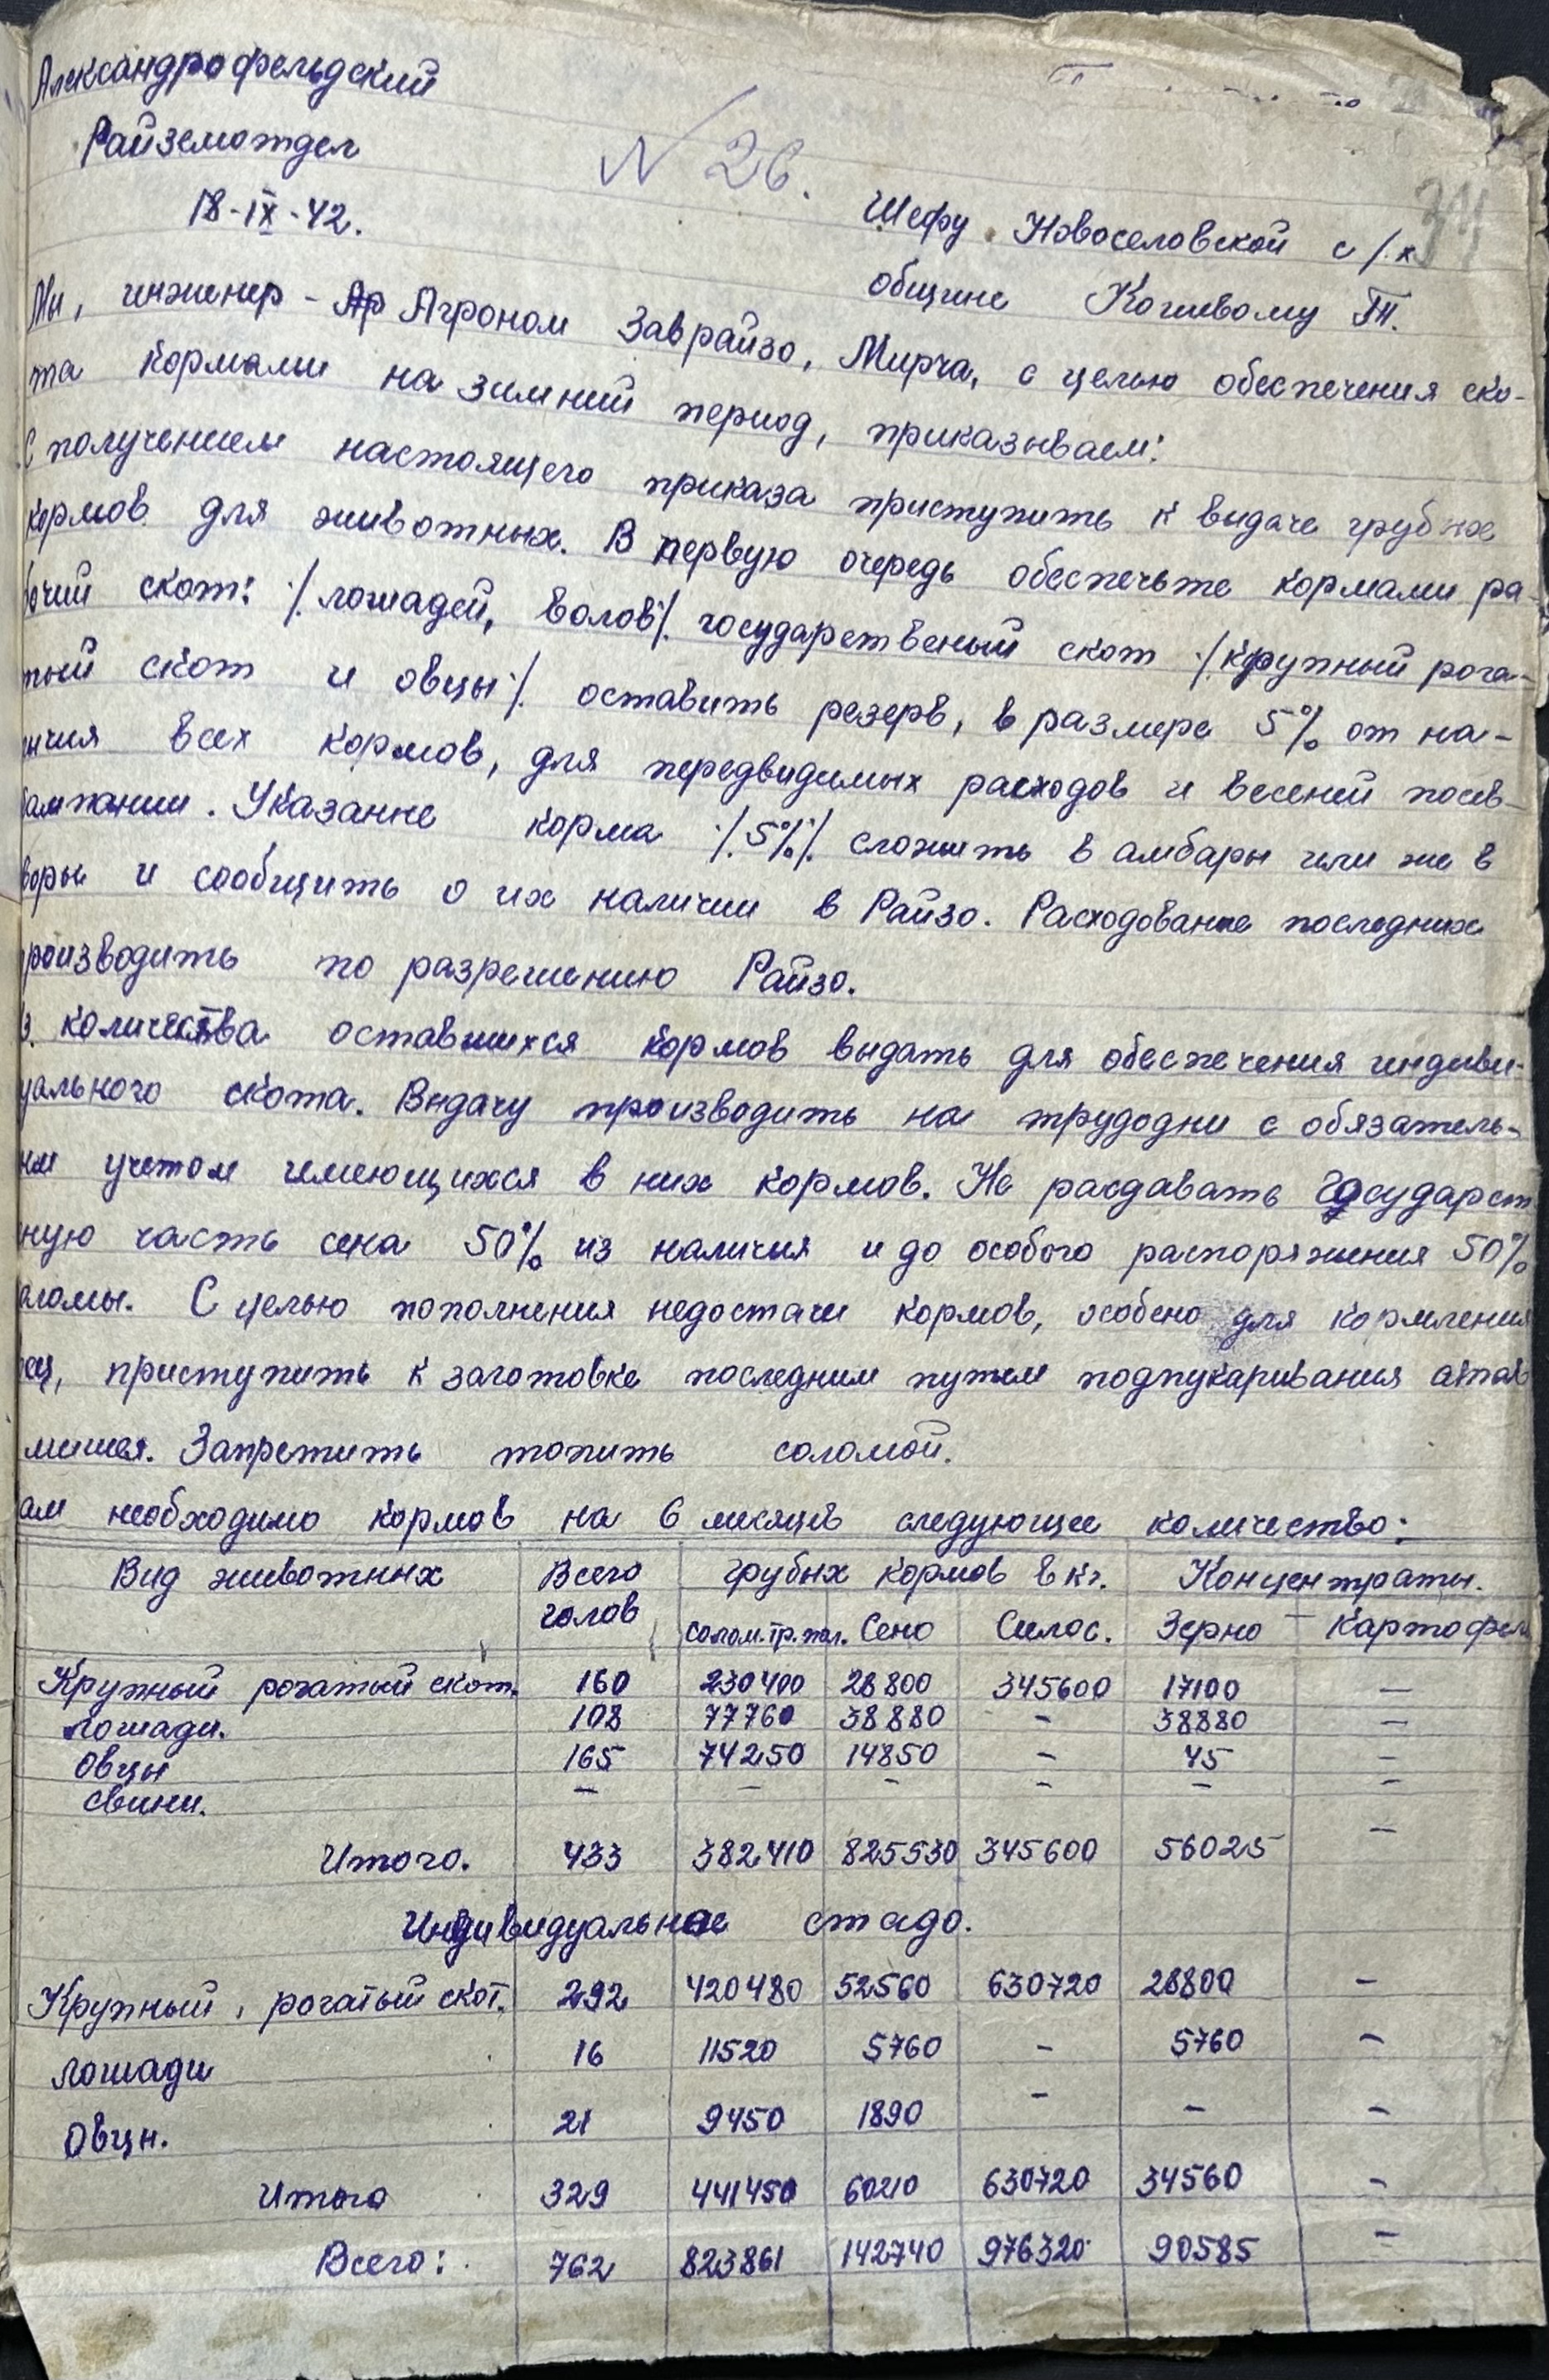 Александрофельдский
Райземотдел
18-IX-42.
N 26.
34
Шефу Новоселовской с/х
общине Кошевому Т.
Мы, инженер - Агроном Заврайзо, Мирча, с целью обеспечения ско-
та кормами на зимний период, приказываем:
С получением настоящего приказа приступить к выдаче грубых
кормов для животных. В первую очередь обеспечьте кормами ра-
бочий скот: ·/. лошадей, волов ·/. государственый скот ·/. крупный рога-
тый скот и овцы ·/. оставить резерв, в размере 5% от на-
личия всех кормов, для передвидимых расходов и весеней посев-
кампании. Указанные корма ·/. 5% ·/. сложить в амбары или же в
воры и сообщить о их наличии в Райзо. Расходование последних
производить по разрешению Райзо.
з. количества оставшихся кормов выдать для обеспечения индиви-
уального скота. Выдачу производить на трудодни с обязатель-
ым учетом имеющихся в них кормов. Не раздавать государст
ную часть сена 50% из наличия и до особого распоряжения 50%
аломы. С целью пополнения недостачи кормов, особено для кормления
вец, приступить к заготовке последним путем подпукаривания атав
мишея. Запретить топить соломой.
ам необходимо кормов на 6 месяцев следующее количество:
Вид животных Всего голов Грубых кормов в кг. Концентраты.
солом. гр. пол. Сено Силос. Зерно Картофель
Крупный рогатый скот. 160 230400 28800 345600 17100 —
лошади. 108 77760 38880 - 38880 —
Овцы 165 74250 14850 - 45 —
свини. — — - - — -
Итого. 433 382410 825530 345600 56025 —
Индивидуальное стадо.
Крупный, рогатый скот. 292 420480 52560 630720 28800 -
лошади 16 11520 5760 - 5760 -
Овцы. 21 9450 1890 - - -
Итого 329 441450 60210 630720 34560 -
Всего: 762 823861 142740 976320 90585 —